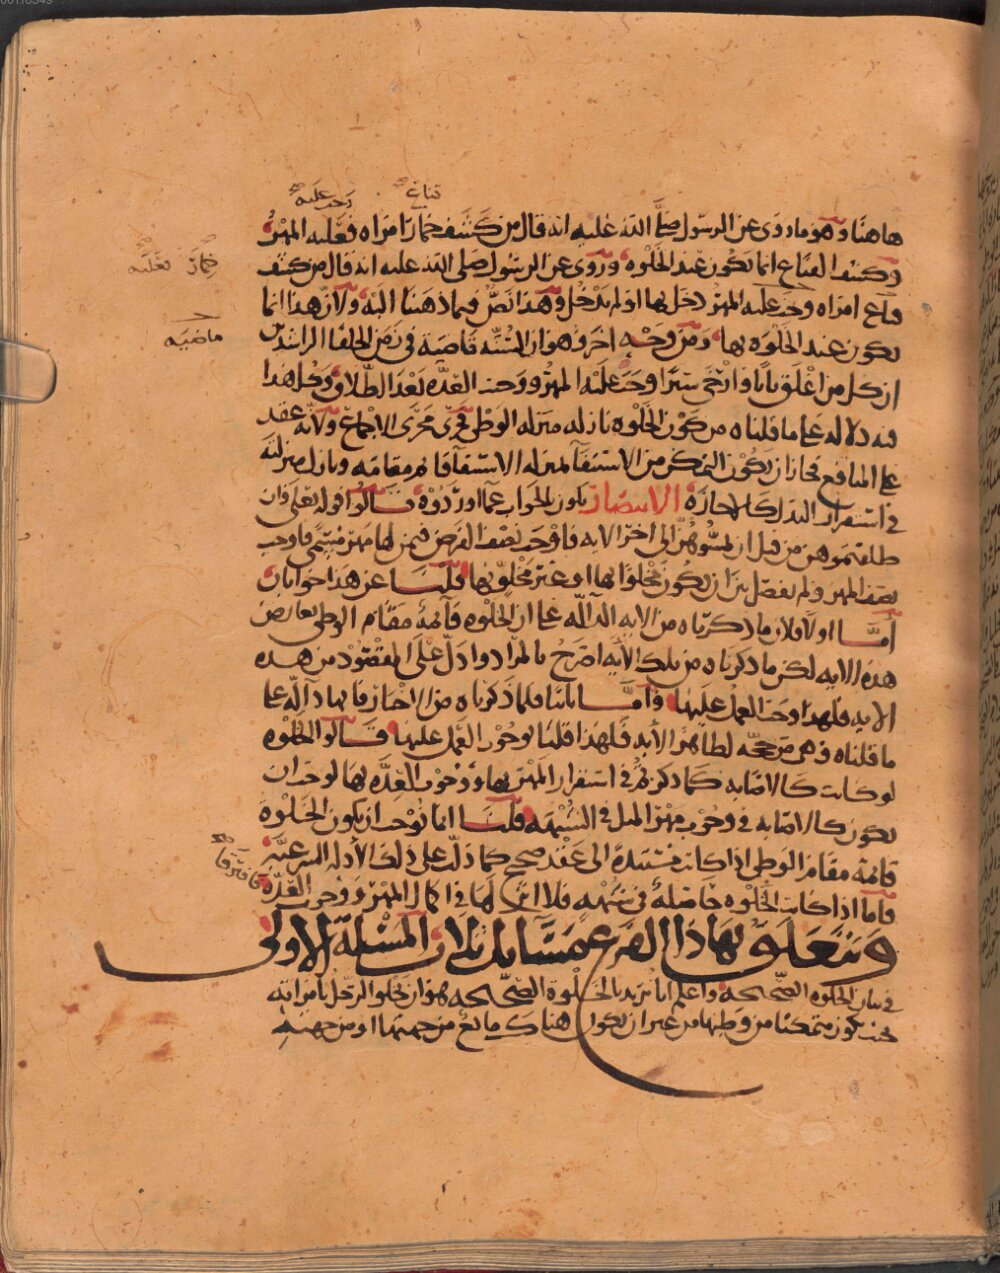 قناع
وجب عليه
هاهنا وهو ما روى عن الرسول صلى الله عليه انه قال من كشف خمار امراه فعليه المهر
وكشف القناع انما يكون عند الخلوه وروى عن الرسول صلى الله عليه انه قال من كشف
خمار فعليه
قناع امراه وجب عليه المهر دخل بها او لم يدخل وهذا نص فيما ذهبنا اليه ولان هذا انما
يكون عند الخلوه بها ومن وجه اخر وهو ان السنه قاضيه في زمن الخلفا الراشدين
ماضيه
ان كل من اغلق بابا وارخى سترا وجب عليه المهر ووجبت العده بعد الطلاق وكل هذا
فيه دلاله على ما قلناه من كون الخلوه نازله منزله الوطى فجرى مجرى الاجماع ولانه عقد
على المنافع فجاز ان يكون التمكن من الاستيفا بمنزله الاستيفا قائم مقامه ونازل منزلته
في استقرار البدل كالاجارة الانتصار يكون بالجواب عما اوردوه قالوا قوله تعلى وان
طلقتموهن من قبل ان تمسوهن الى اخر الايه فاوجب نصف الفرض فيمن لها مهر مسمى فاوجب
نصف المهر ولم يفصل بين ان يكون مخلوا بها او غير مخلو بها قلنا عن هذا جوابان
اما اولا فلان ما ذكرناه من الايه الداله على ان الخلوه قائمة مقام الوطى يعارض
هذه الايه لكن ما ذكرناه من تلك الايه اصرح بالمراد وادل على المقصود من هذه
الايه فلهذا وجب العمل عليها واما ثانيا فلما ذكرناه من الاخبار فانها داله على
ما قلناه وهي مرجحه لظاهر الايه فلهذا قلنا بوجوب العمل عليها قالوا الخلوه
لو كانت كالاصابه كما ذكرتم في استقرار المهر بها ووجوب العده بها لوجب ان
يكون كالاصابه في وجوب مهر المثل في الشبهه قلنا انما يوجب ان يكون الخلوة
قائمه مقام الوطى اذا كانت مستندة الى عقد صحيح كما دل على ذلك الادله الشرعيه
فافترقا
فاما اذا كانت الخلوه حاصلة في شبهه فلا اثر لها في اكمال المهر ووجوب العدة
ويتعلق بهاذا الفرع مسايل ثلاث المسئلة الاولى
في بيان الخلوه الصحيحه واعلم انا نريد بالخلوة الصحيحه هو ان يخلو الرجل بامراته
بحيث يكون متمكنا من وطيها من غير ان يكون هناك مانع من جهتها او من جهته